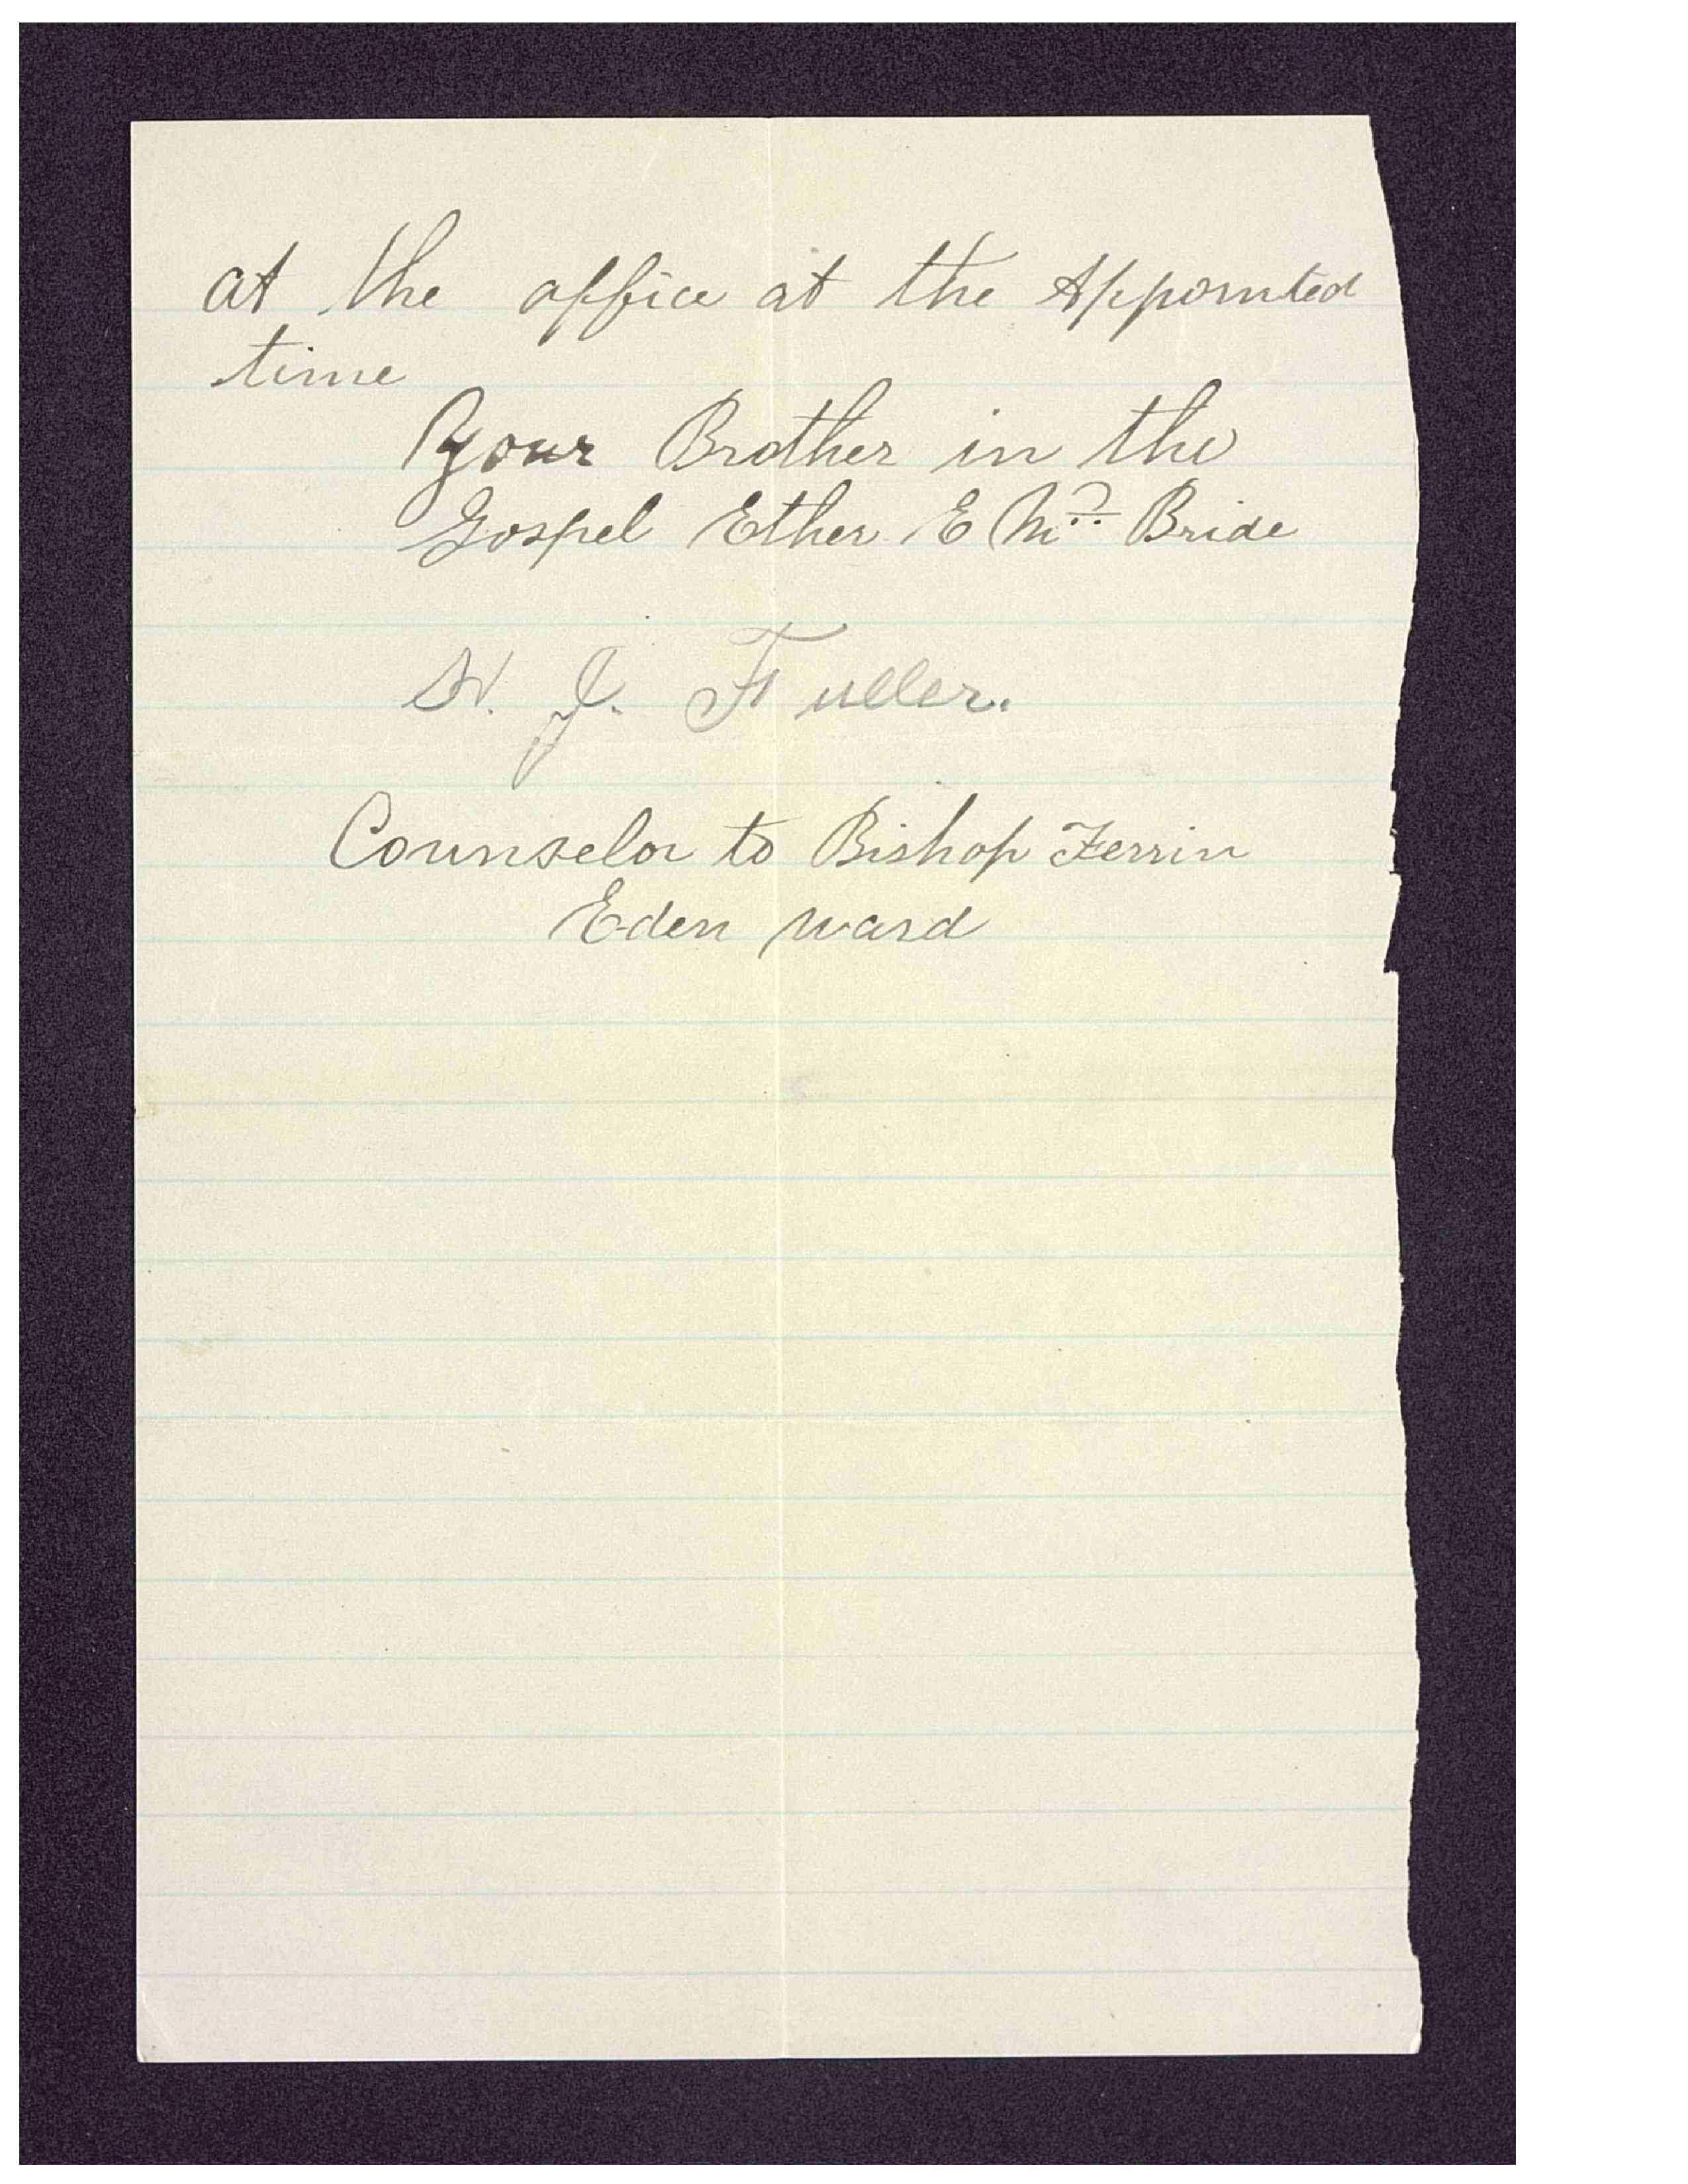 at the office at the Appointed
time
Your Brother in the
Gospel Ether E Mc Bride
W. J. Fuller.
Counselor to Bishop Ferrin
Eden ward